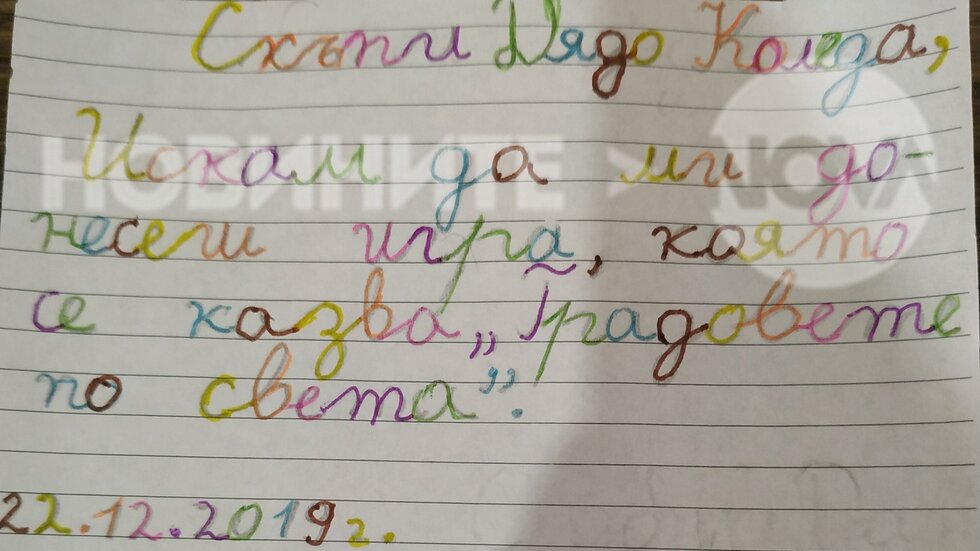 Скъпи Дядо Коледа,
Искам да ми до-
НОВИНИТЕ NOVA
несеш игра, която
се казва „Градовете
по света”.
22.12.2019г.